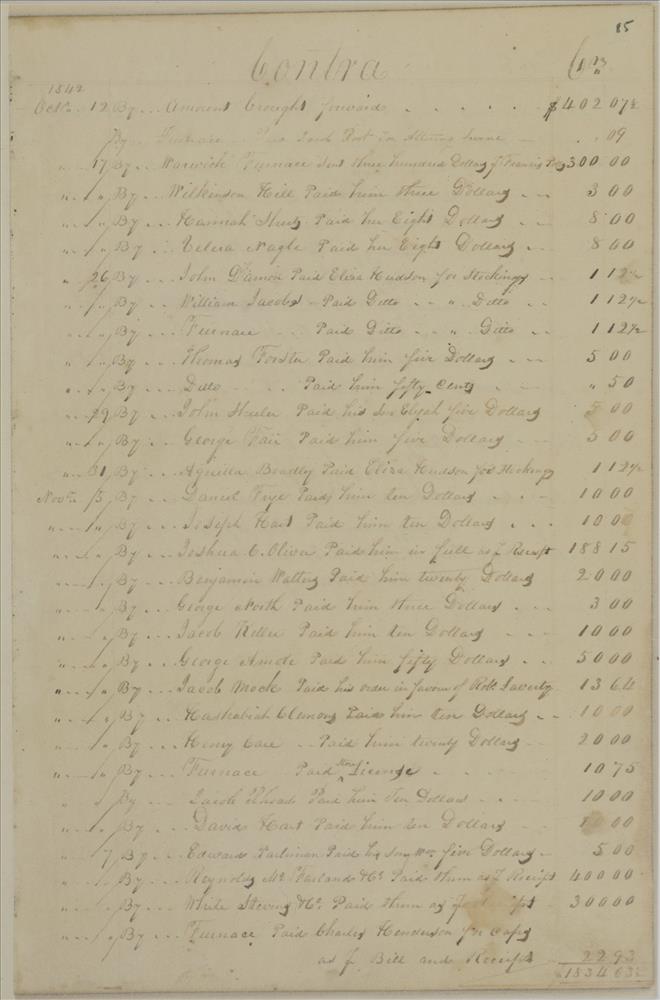 15
Contra Cr
1842
Octr. 12 By ... Amount brought forward . . . . . $402 07½
By ... Furnace Paid for - .. 09
" .. 17 By ... Warwick Furnace Sent three hundred Dollars 300 00
" .. " " By ... Wilkinson Hill Paid him three Dollars .. 3 00
" .. " " By ... Hannah Paid her Eight Dollars .. 8 00
" .. " " By ... Nagle Paid her Eight Dollars .. 8 00
" 26 By ... John Damon Paid Eliza Hudson for Stockings - 1 12½
" .. " " By ... William Jacobs - Paid Ditto .. " .. Ditto .. 1 12½
" .. " " By ... Furnace Paid Ditto .. " .. Ditto .. 1 12½
" .. " " By ... Thomas Forster Paid him five Dollars ... 5 00
" .. " " By ... Ditto . . . Paid him fifty Cents . . . " 50
" .. 29 By ... John Paid his Son Elijah five Dollars 5 00
" .. " " By ... George Fair Paid him five Dollars ... 5 00
" .. 31 By ... Aquilla Bradley Paid Eliza Hudson for Stockings 1 12½
Novr. 5 By ... Daniel Frye Paid him ten Dollars . . . 10 00
" .. " " By ... Joseph Hart Paid him ten Dollars . . . 10 00
" .. " " By ... Joshua C. Oliver Paid him in full as Receipt 188 15
" .. " " By ... Benjamin Walters Paid him twenty Dollars 20 00
" .. " " By ... George North Paid him three Dollars ... 3 00
" .. " " By ... Jacob Keller Paid him ten Dollars ... 10 00
" .. " " By ... George Amole Paid him fifty Dollars .. 50 00
" .. " " By ... Jacob Mock Paid his order in favour of Robt Laverty 13 64
" .. " " By ... Clemons Paid him ten Dollars .. 10 00
" .. " " By ... Henry Care .. Paid him twenty Dollars 20 00
" .. " " By ... Furnace Paid Store License . . . 10 75
" " By ... Jacob Rhoads Paid him Ten Dollars . . . 10 00
" .. " " By ... David Hart Paid him ten Dollars ... 10 00
" .. 7 By ... Edward Paid his Son Wm five Dollars - 5 00
" .. " " By ... Reynolds McFarland & Co Paid them as Receipt 400 00
" .. " " By ... White Stevens & Co Paid them as - 300 00
" .. " " By ... Furnace Paid Charles Henderson for Caps
as Bill and Receipt - 22 93
1834 63½